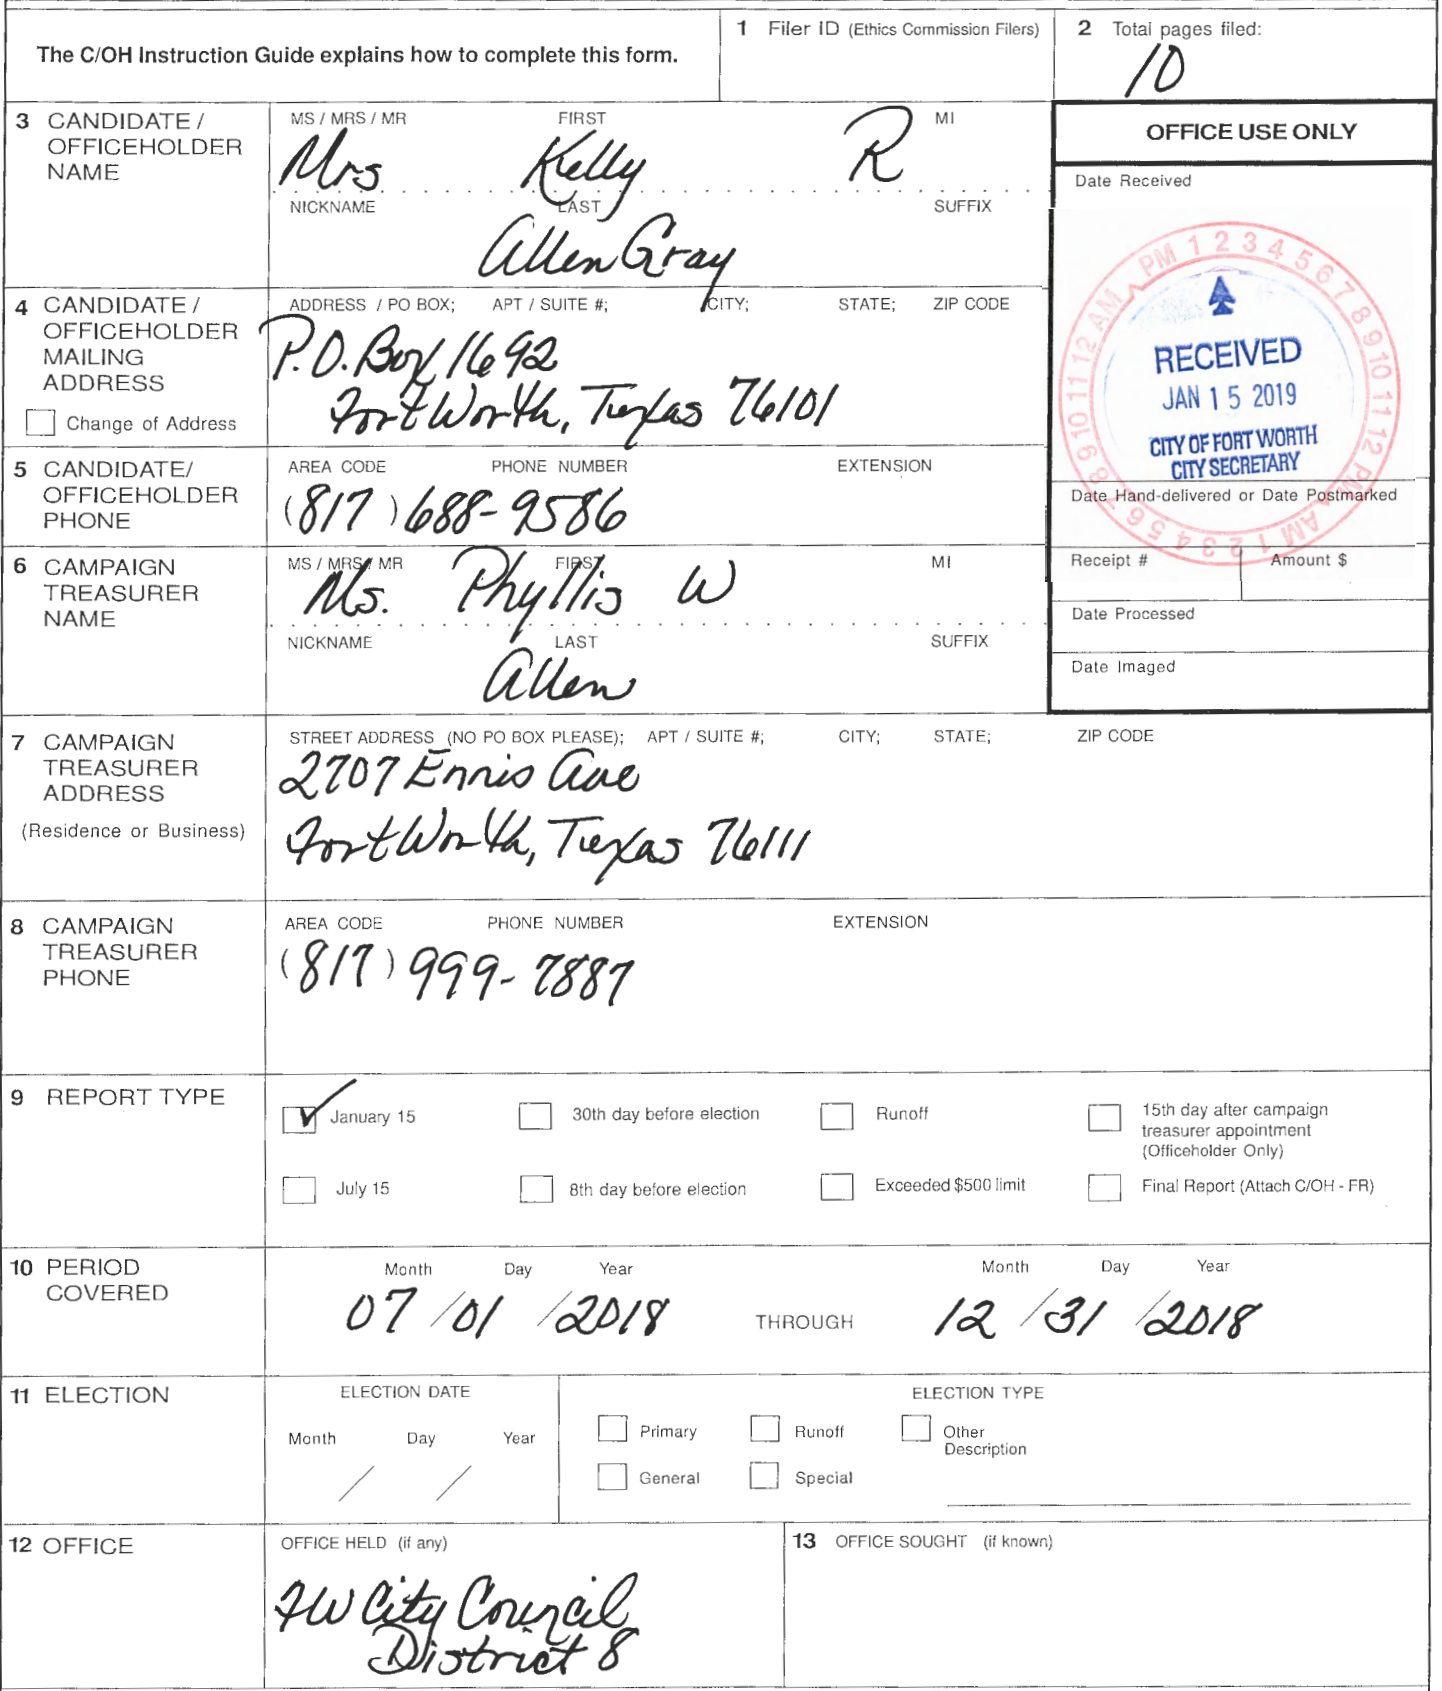 The C/OH Instruction Guide explains how to complete this form.
1 Filer ID (Ethics Commission Filers)
2 Total pages filed:
10
3 CANDIDATE / OFFICEHOLDER NAME
MS / MRS / MR FIRST MI
Mrs Kelly R
NICKNAME LAST SUFFIX
Allen Gray
OFFICE USE ONLY
Date Received
PM 1 2 3 4 5 6 7 8 9 10 11 12 PM AM 1 2 3 4 5 6 7 8 9 10 11 12 AM
RECEIVED
JAN 15 2019
CITY OF FORT WORTH
CITY SECRETARY
Date Hand-delivered or Date Postmarked
Receipt # Amount $
Date Processed
Date Imaged
4 CANDIDATE / OFFICEHOLDER MAILING ADDRESS
Change of Address
ADDRESS / PO BOX; APT / SUITE #; CITY; STATE; ZIP CODE
P.O. Box 1692
Fort Worth, Texas 76101
5 CANDIDATE/ OFFICEHOLDER PHONE
AREA CODE PHONE NUMBER EXTENSION
(817) 688-9586
6 CAMPAIGN TREASURER NAME
MS / MRS / MR FIRST MI
Ms. Phyllis W
NICKNAME LAST SUFFIX
Allen
7 CAMPAIGN TREASURER ADDRESS
(Residence or Business)
STREET ADDRESS (NO PO BOX PLEASE); APT / SUITE #; CITY; STATE; ZIP CODE
2707 Ennis Ave
Fort Worth, Texas 76111
8 CAMPAIGN TREASURER PHONE
AREA CODE PHONE NUMBER EXTENSION
(817) 999-7887
9 REPORT TYPE
January 15 30th day before election Runoff 15th day after campaign treasurer appointment (Officeholder Only)
July 15 8th day before election Exceeded $500 limit Final Report (Attach C/OH - FR)
10 PERIOD COVERED
Month Day Year Month Day Year
07 / 01 / 2018 THROUGH 12 / 31 / 2018
11 ELECTION
ELECTION DATE
Month Day Year
/ /
ELECTION TYPE
Primary Runoff Other Description
General Special
12 OFFICE
OFFICE HELD (if any)
FW City Council
District 8
13 OFFICE SOUGHT (if known)